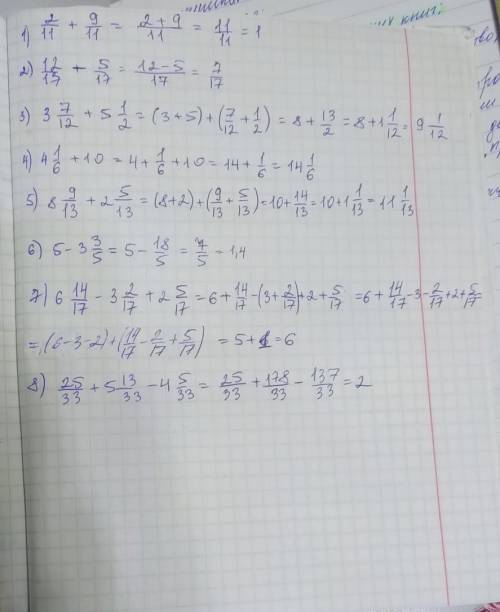 1) 2/11 + 9/11 = 2+9/11 = 11/11 = 1
2) 12/17 - 5/17 = 12-5/17 = 7/17
3) 3 7/12 + 5 1/2 = (3+5)+(7/12+1/2) = 8+13/2 = 8+1 1/12 = 9 1/12
4) 4 1/6 + 10 = 4+1/6+10 = 14+1/6 = 14 1/6
5) 8 9/13 + 2 5/13 = (8+2)+(9/13+5/13) = 10+14/13 = 10+1 1/13 = 11 1/13
6) 5-3 3/5 = 5-18/5 = 7/5 = 1,4
7) 6 14/17 - 3 2/17 + 2 5/17 = 6+14/17-(3+2/17)+2+5/17 = 6+14/17-3-2/17+2+5/17
= (6-3-2)+(14/17-2/17+5/17) = 5+1=6
8) 25/33 + 5 13/33 - 4 5/33 = 25/33 + 178/33 - 137/33 = 2